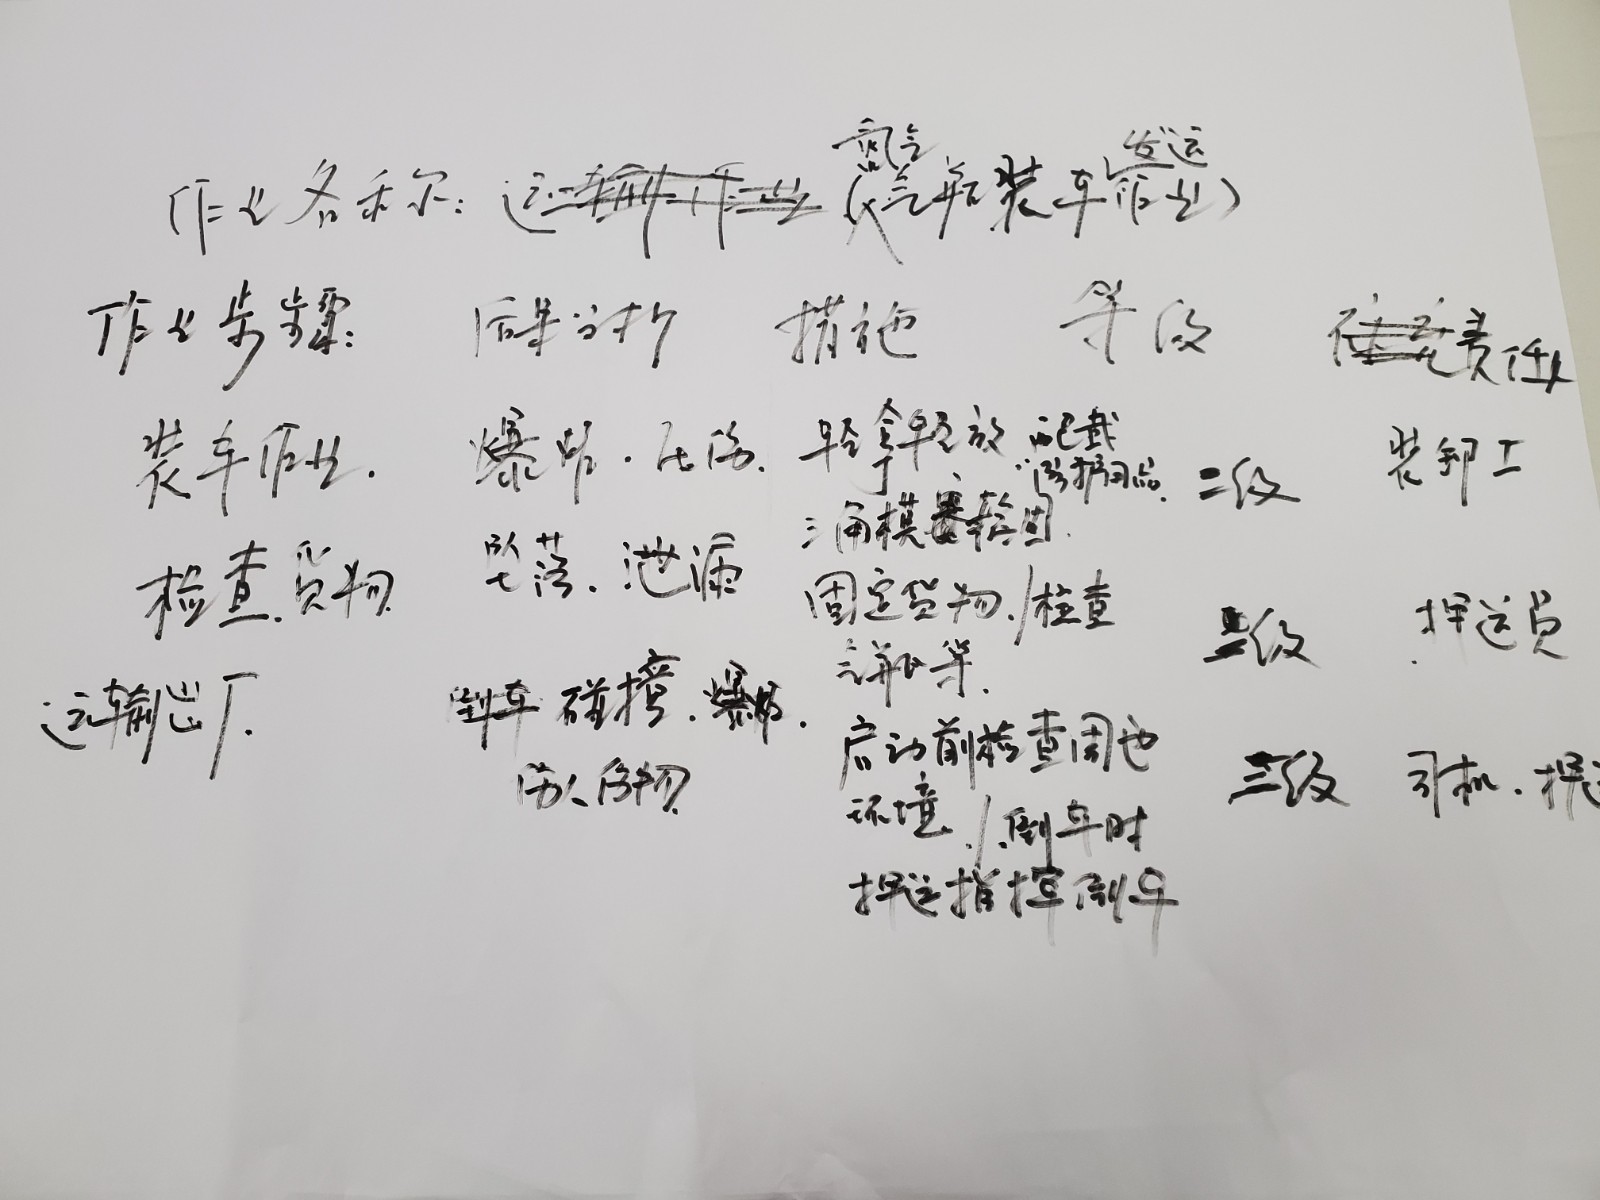 作业名称：(氯气瓶装车发运作业)
作业步骤： 后果分析 措施 等级 责任人
装车作业. 爆炸.压伤. 轻拿轻放、配戴防护用品. 二级 装卸工
三角模塞稳固.
检查.货物 坠落.泄漏 固定货物./检查 三级 押送员
气瓶等.
运输出厂. 倒车碰撞.爆炸. 启动前检查周边 三级 司机.押送
伤人伤物 环境./倒车时
押送指挥倒车